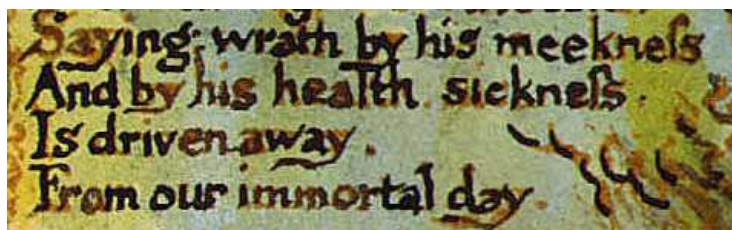 Saying: wrath by his meekneſs
And by his health sickneſs.
Is driven away.
From our immortal day.